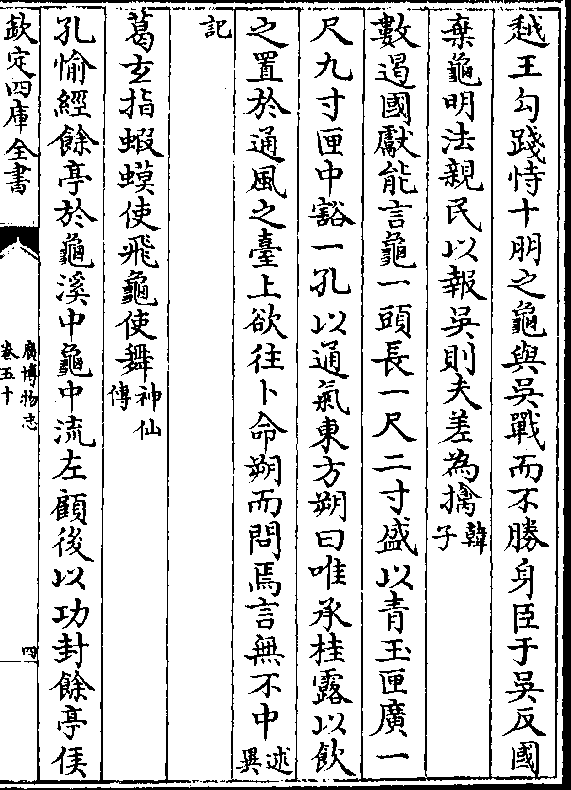 越王勾踐恃十朋之龜與吳戰而不勝身臣于吳反國
棄龜明法親民以報吳則夫差為擒韓子
數過國獻能言龜一頭長一尺二寸盛以青玉匣廣一
尺九寸匣中豁一孔以通氣東方朔曰唯承桂露以飲
之置於通風之臺上欲往卜命朔而問焉言無不中述異
記
葛玄指蝦蟆使飛龜使舞神仙傳
孔愉經餘亭於龜溪中龜中流左顧後以功封餘亭侯
欽定四庫全書
廣博物志
卷五十
四